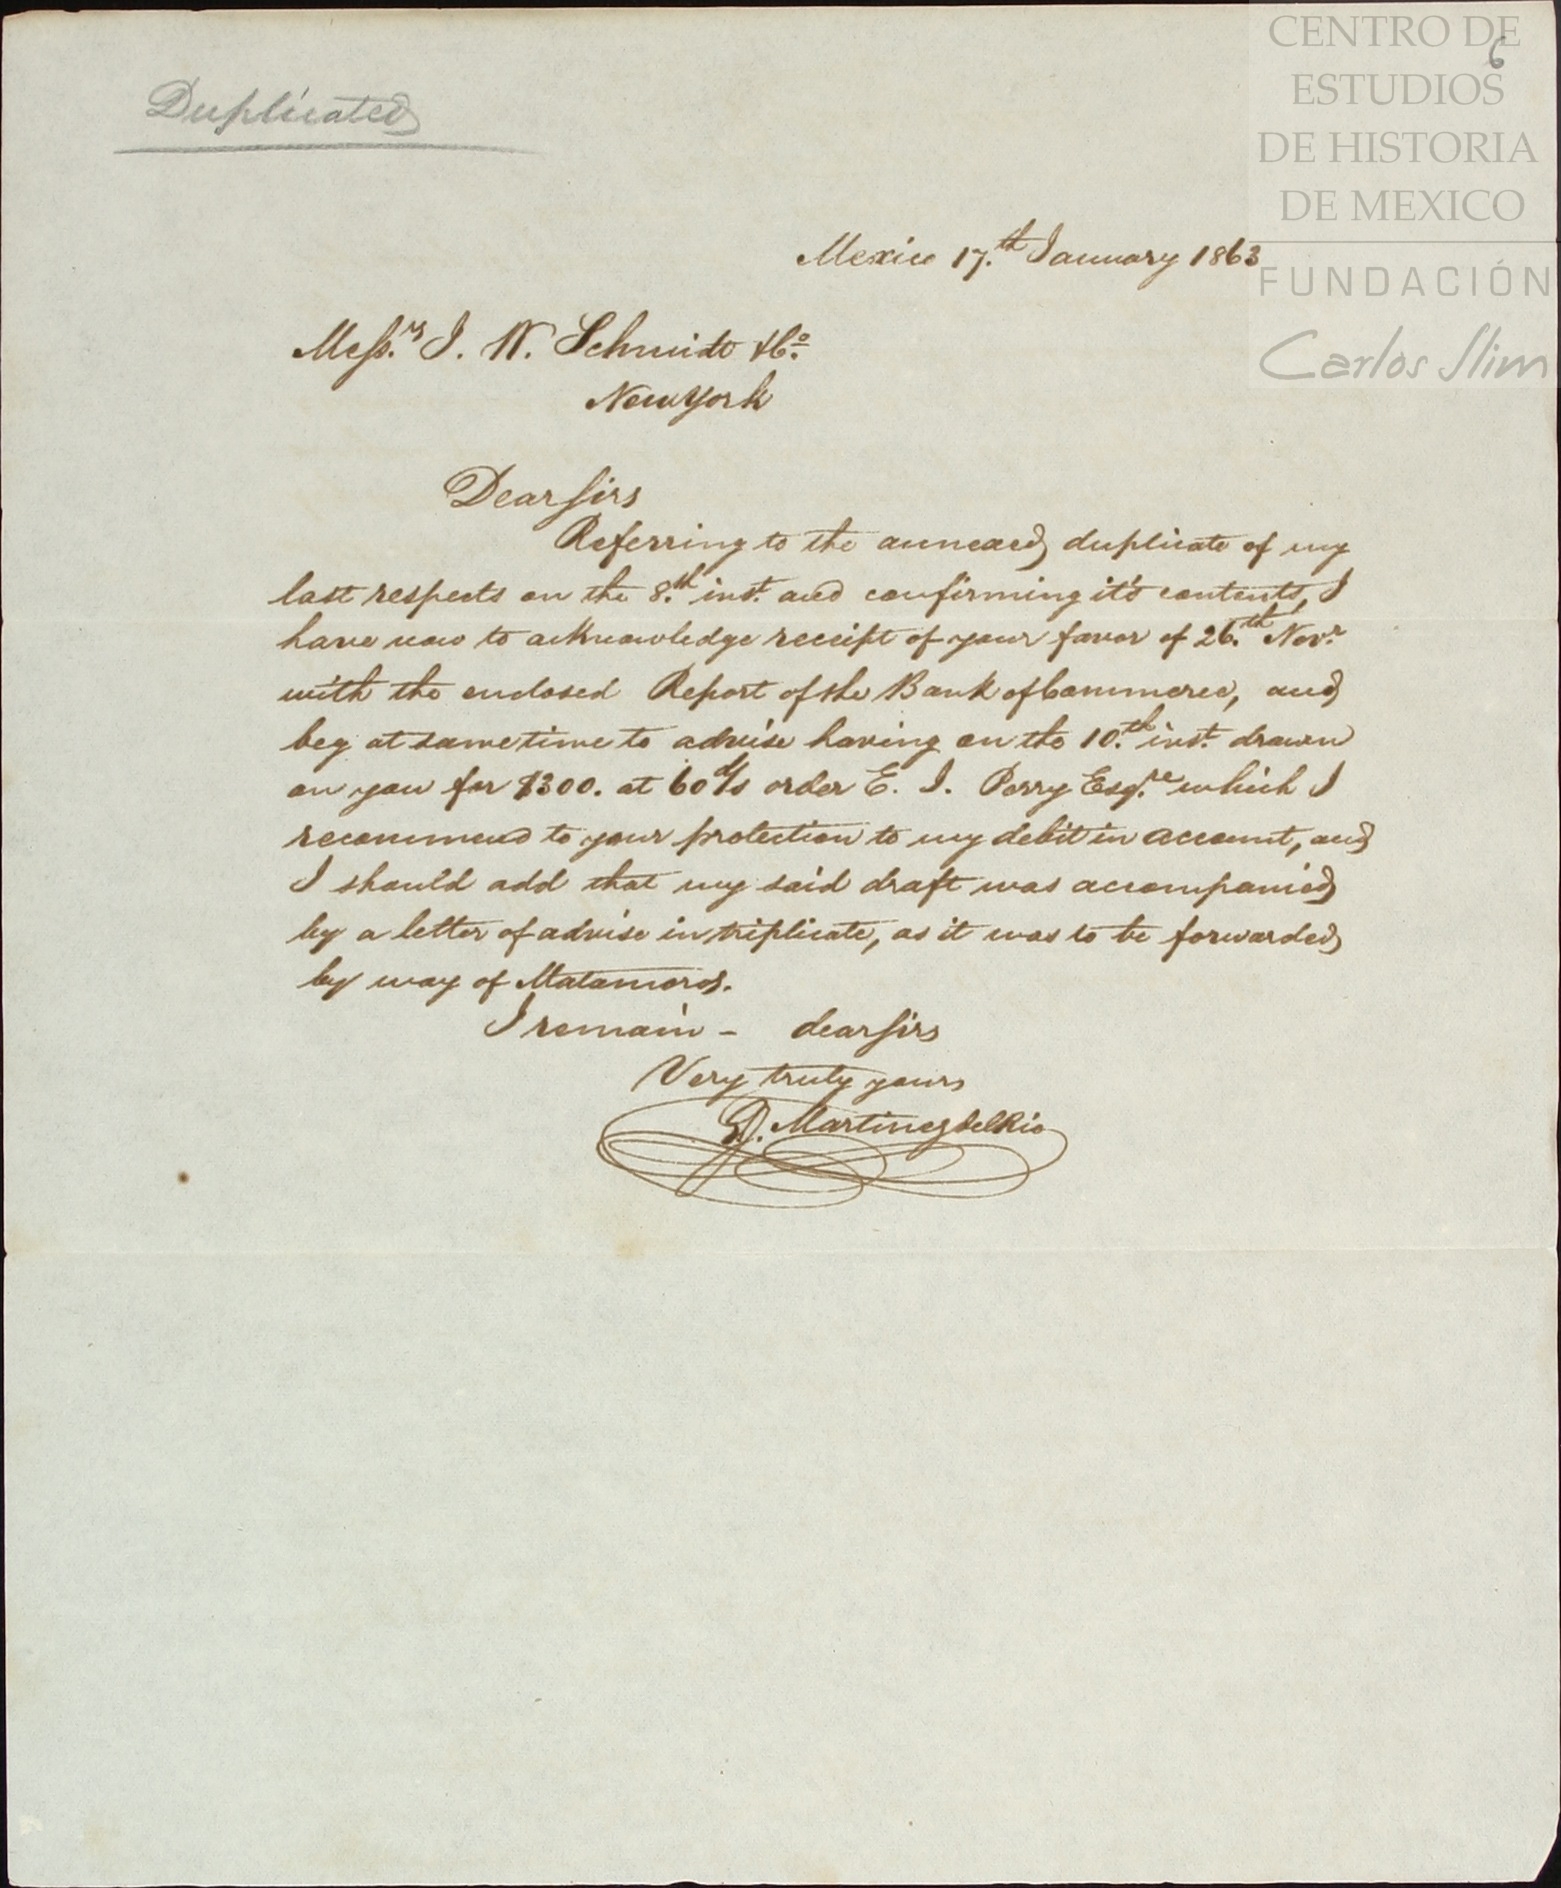 CENTRO DE
ESTUDIOS
DE HISTORIA
DE MEXICO
FUNDACIÓN
Carlos Slim
6
Duplicated
Mexico 17.th January 1863
Mess.rs J. W. Schmidt & Co.
New York
Dear Sirs
Referring to the annexed duplicate of my
last respects on the 8.th inst. and confirming it's contents, I
have now to acknowledge receipt of your favor of 26.th Nov.r
with the enclosed Report of the Bank of Commerce, and
beg at same time to advise having on the 10.th inst. drawn
on you for $300. at 60 d/s order E. J. Perry Esq.re which I
recommend to your protection to my debit in account, and
I should add that my said draft was accompanied
by a letter of advise in triplicate, as it was to be forwarded
by way of Matamoros.
I remain - dear Sirs
Very truly yours
Martinez del Rio